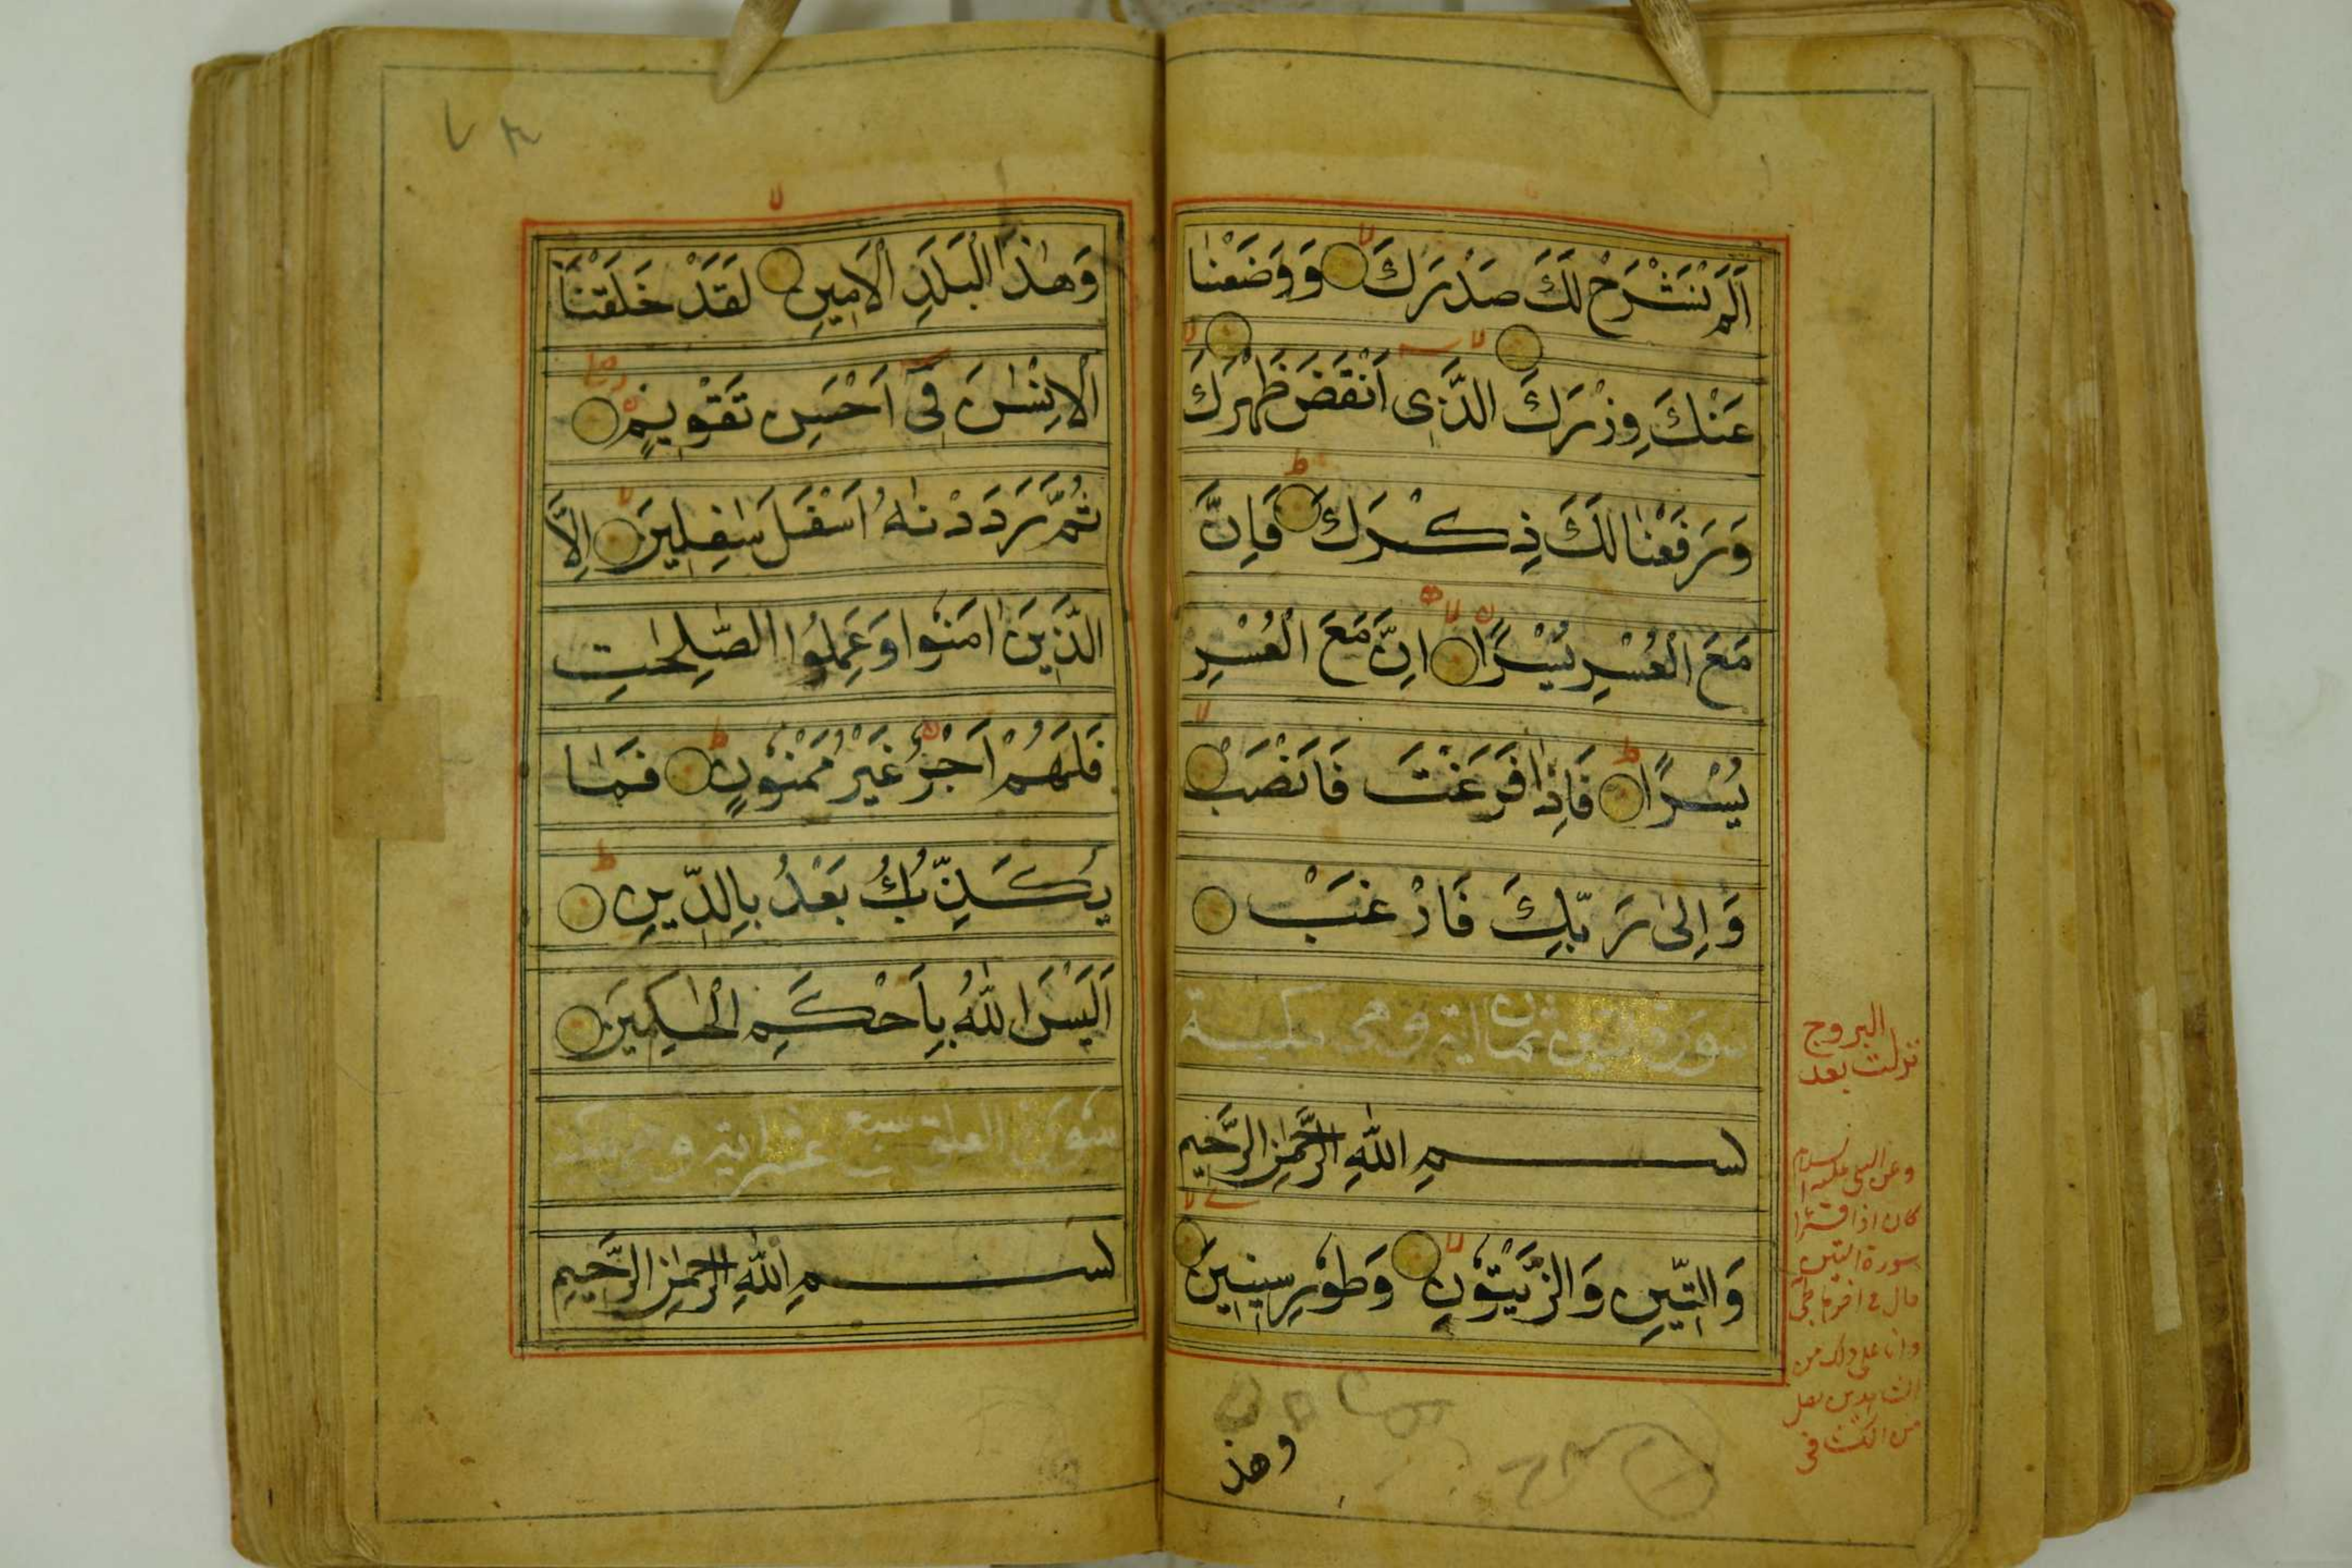 اَلَمْ نَشْرَحْ لَكَ صَدْرَكَ وَوَضَعْنٰا
عَنْكَ وِزْرَكَ الَّذِى اَنْقَضَ ظَهْرَكَ
وَرَفَعْنٰا لَكَ ذِكْرَكَ فَاِنَّ
مَعَ الْعُسْرِ يُسْرًا اِنَّ مَعَ الْعُسْرِ
يُسْرًا فَاِذٰا فَرَغْتَ فَانْصَبْ
وَاِلٰى رَبِّكَ فَارْغَبْ
سورة التين ثمان اية وهى مكية
بسم اللّٰهِ الرَّحْمٰنِ الرَّحٖيمِ
وَالتّٖينِ وَالزَّيْتُونِ وَطُورِ سٖينٖينَ
وهذ
البروج
نزلت بعد
وعن النبى عليه السلام
كان اذا قرأ
سورة التين
وانا على ذلك من
الشاهدين
من الكشاف
٧٨
وَهٰذَا الْبَلَدِ الْاَمٖينِ لَقَدْ خَلَقْنَا
الْاِنْسٰنَ فٖٓى اَحْسَنِ تَقْوٖيمٍ
ثُمَّ رَدَدْنٰهُ اَسْفَلَ سٰفِلٖينَ اِلَّا
الَّذٖينَ اٰمَنُوا وَعَمِلُوا الصّٰلِحٰتِ
فَلَهُمْ اَجْرٌ غَيْرُ مَمْنُونٍ فَمٰا
يُكَذِّبُكَ بَعْدُ بِالدّٖينِ
اَلَيْسَ اللّٰهُ بِاَحْكَمِ الْحٰكِمٖينَ
سورة العلق تسع عشر اية وهى مكية
بسم اللّٰهِ الرَّحْمٰنِ الرَّحٖيمِ